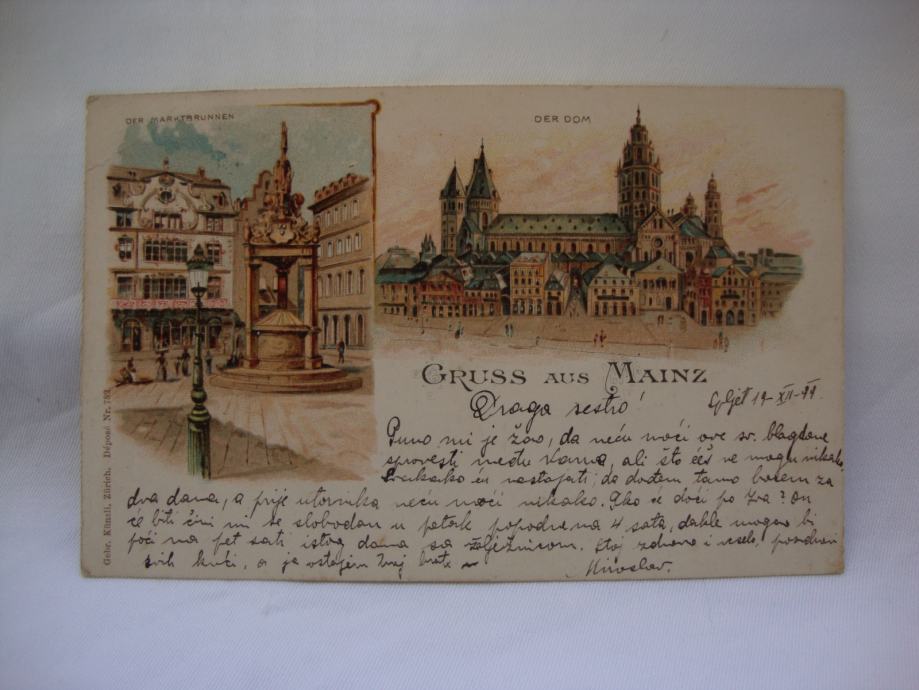 DER MARKTBRUNNEN
DER DOM
GRUSS AUS MAINZ
Draga sestro!
Spljet 19-XII-99.
Puno mi je žao, da neću moći ove sv. blagdane
sprovesti među Vama, ali što ćeš ne mogu nikako.
Svakako ću nastojati, da dođem tamo barem za
dva dana, a prije utornika neću moći nikako. Ako će doći po Iva? On
će biti čini mi se slobodan u petak popodne na 4 sata, dakle mogao bi
poći na pet sati istog dana sa željeznicom. Stoj zdravo i veselo, pozdravi
svih kući, a ja ostajem tvoj brat
Miroslav.
Gebr. Künzli, Zürich. Déposé Nr. 782